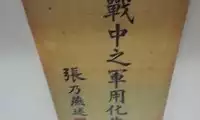 戰中之軍用化
張乃燕述